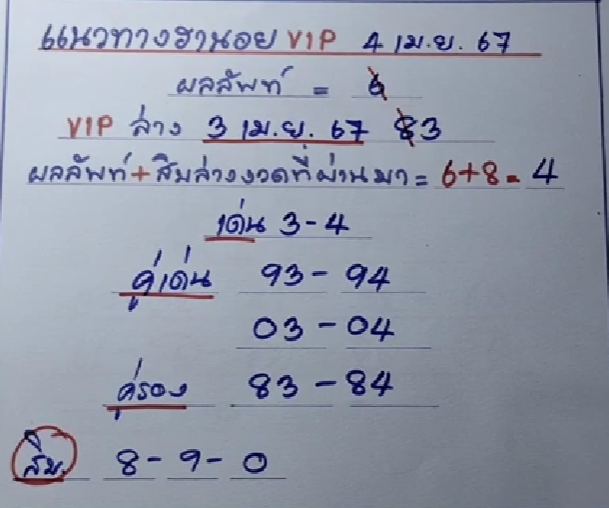 แนวทางฮานอย VIP 4 เม.ย. 67
ผลลัพท์ = 6
VIP ล่าง 3 เม.ย. 67 83
ผลลัพท์+สิบล่างงวดที่ผ่านมา = 6+8 = 4
เด่น 3-4
คู่เด่น 93-94
03-04
คู่รอง 83-84
สิบ 8-9-0